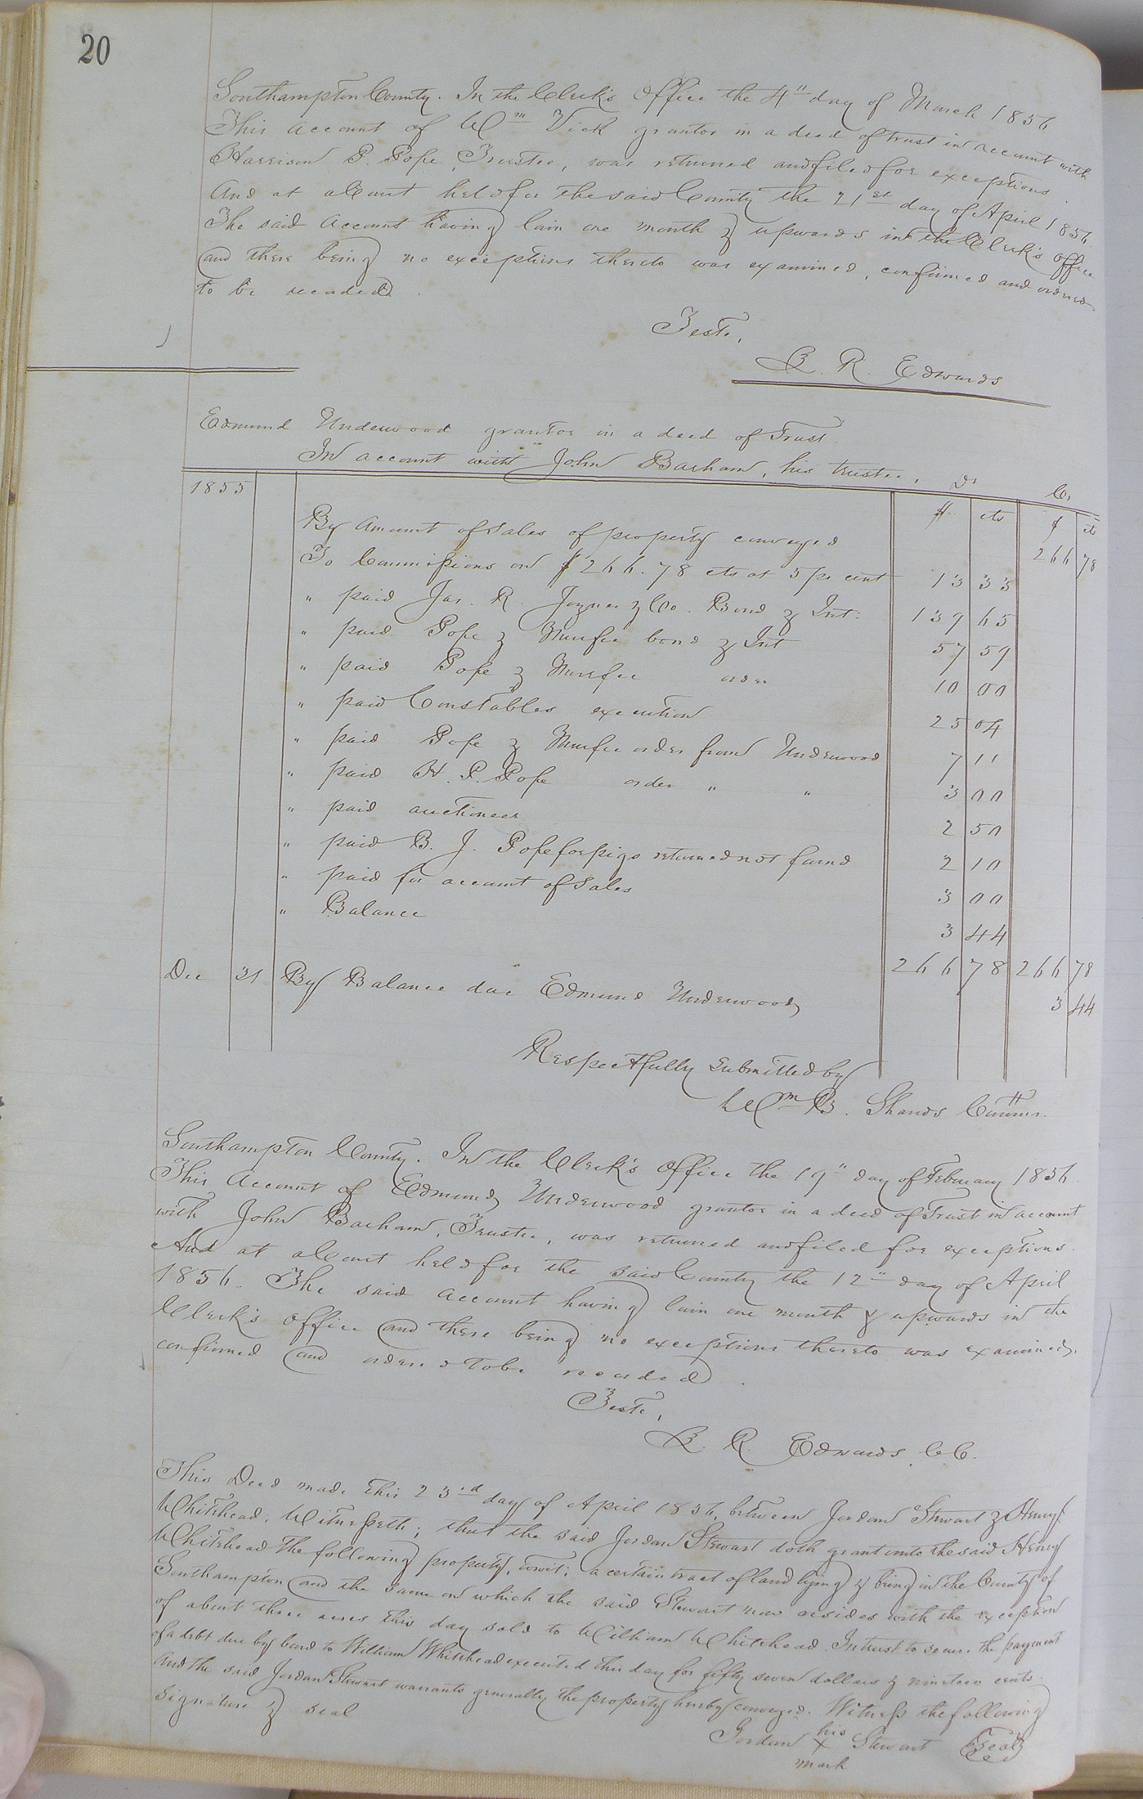 20
Southampton County. In the Clerk's Office the 4" day of March 1856
This account of Wm Vick grantor in a deed of trust in account with
Harrison P. Pope, Trustee, was returned and filed for exceptions.
And at a Court held for the said County the 21st day of April 1856
The said Account having lain one month & upwards in the Clerk's office
and there being no exceptions thereto was examined, confirmed and ordered
to be recorded.
Teste,
L. R. Edwards
Edmund Underwood grantor in a deed of Trust
In account with John Barham, his trustee, Dr Cr
1855 $ cts $ cts
By Amount of Sales of property conveyed 266 78
To Commissions on $266.78 cts at 5 pr cent 13 33
" paid Jas. R. Joyner & Co. Bond & Int. 139 65
" paid Pope & Murfee bond & Int 57 59
" paid Pope & Murfee order 10 00
" paid Constables execution 25 04
" paid Pope & Murfee order from Underwood 7 11
" paid H. P. Pope order " " 3 00
" paid auctioneer 2 50
" paid B. J. Pope for pigs returned not found 2 10
" paid for account of Sales 3 00
" Balance 3 44
266 78 266 78
Dec 31 By Balance due Edmund Underwood 3 44
Respectfully Submitted by
Wm B. Shands Commr.
Southampton County. In the Clerk's Office the 19" day of February 1856
This Account of Edmund Underwood grantor in a deed of Trust in account
with John Barham, Trustee, was returned and filed for exceptions.
And at a Court held for the said County the 12" day of April
1856. The said Account having lain one month & upwards in the
Clerk's Office and there being no exceptions thereto was examined,
confirmed and ordered to be recorded.
Teste,
L. R. Edwards C.C.
This Deed made this 23rd day of April 1856, between Jordan Stewart & Henry
Whitehead, Witnesseth; that the said Jordan Stewart doth grant unto the said Henry
Whitehead the following property, towit; a certain tract of land lying & being in the County of
Southampton and the same on which the said Stewart now resides with the exception
of about three acres this day sold to William Whitehead. In trust to secure the payment
of a debt due by bond to William Whitehead executed this day for fifty seven dollars & nineteen cents
And the said Jordan Stewart warrants generally the property hereby conveyed. Witness the following
signature & seal
Jordan his x mark Stewart (Seal)